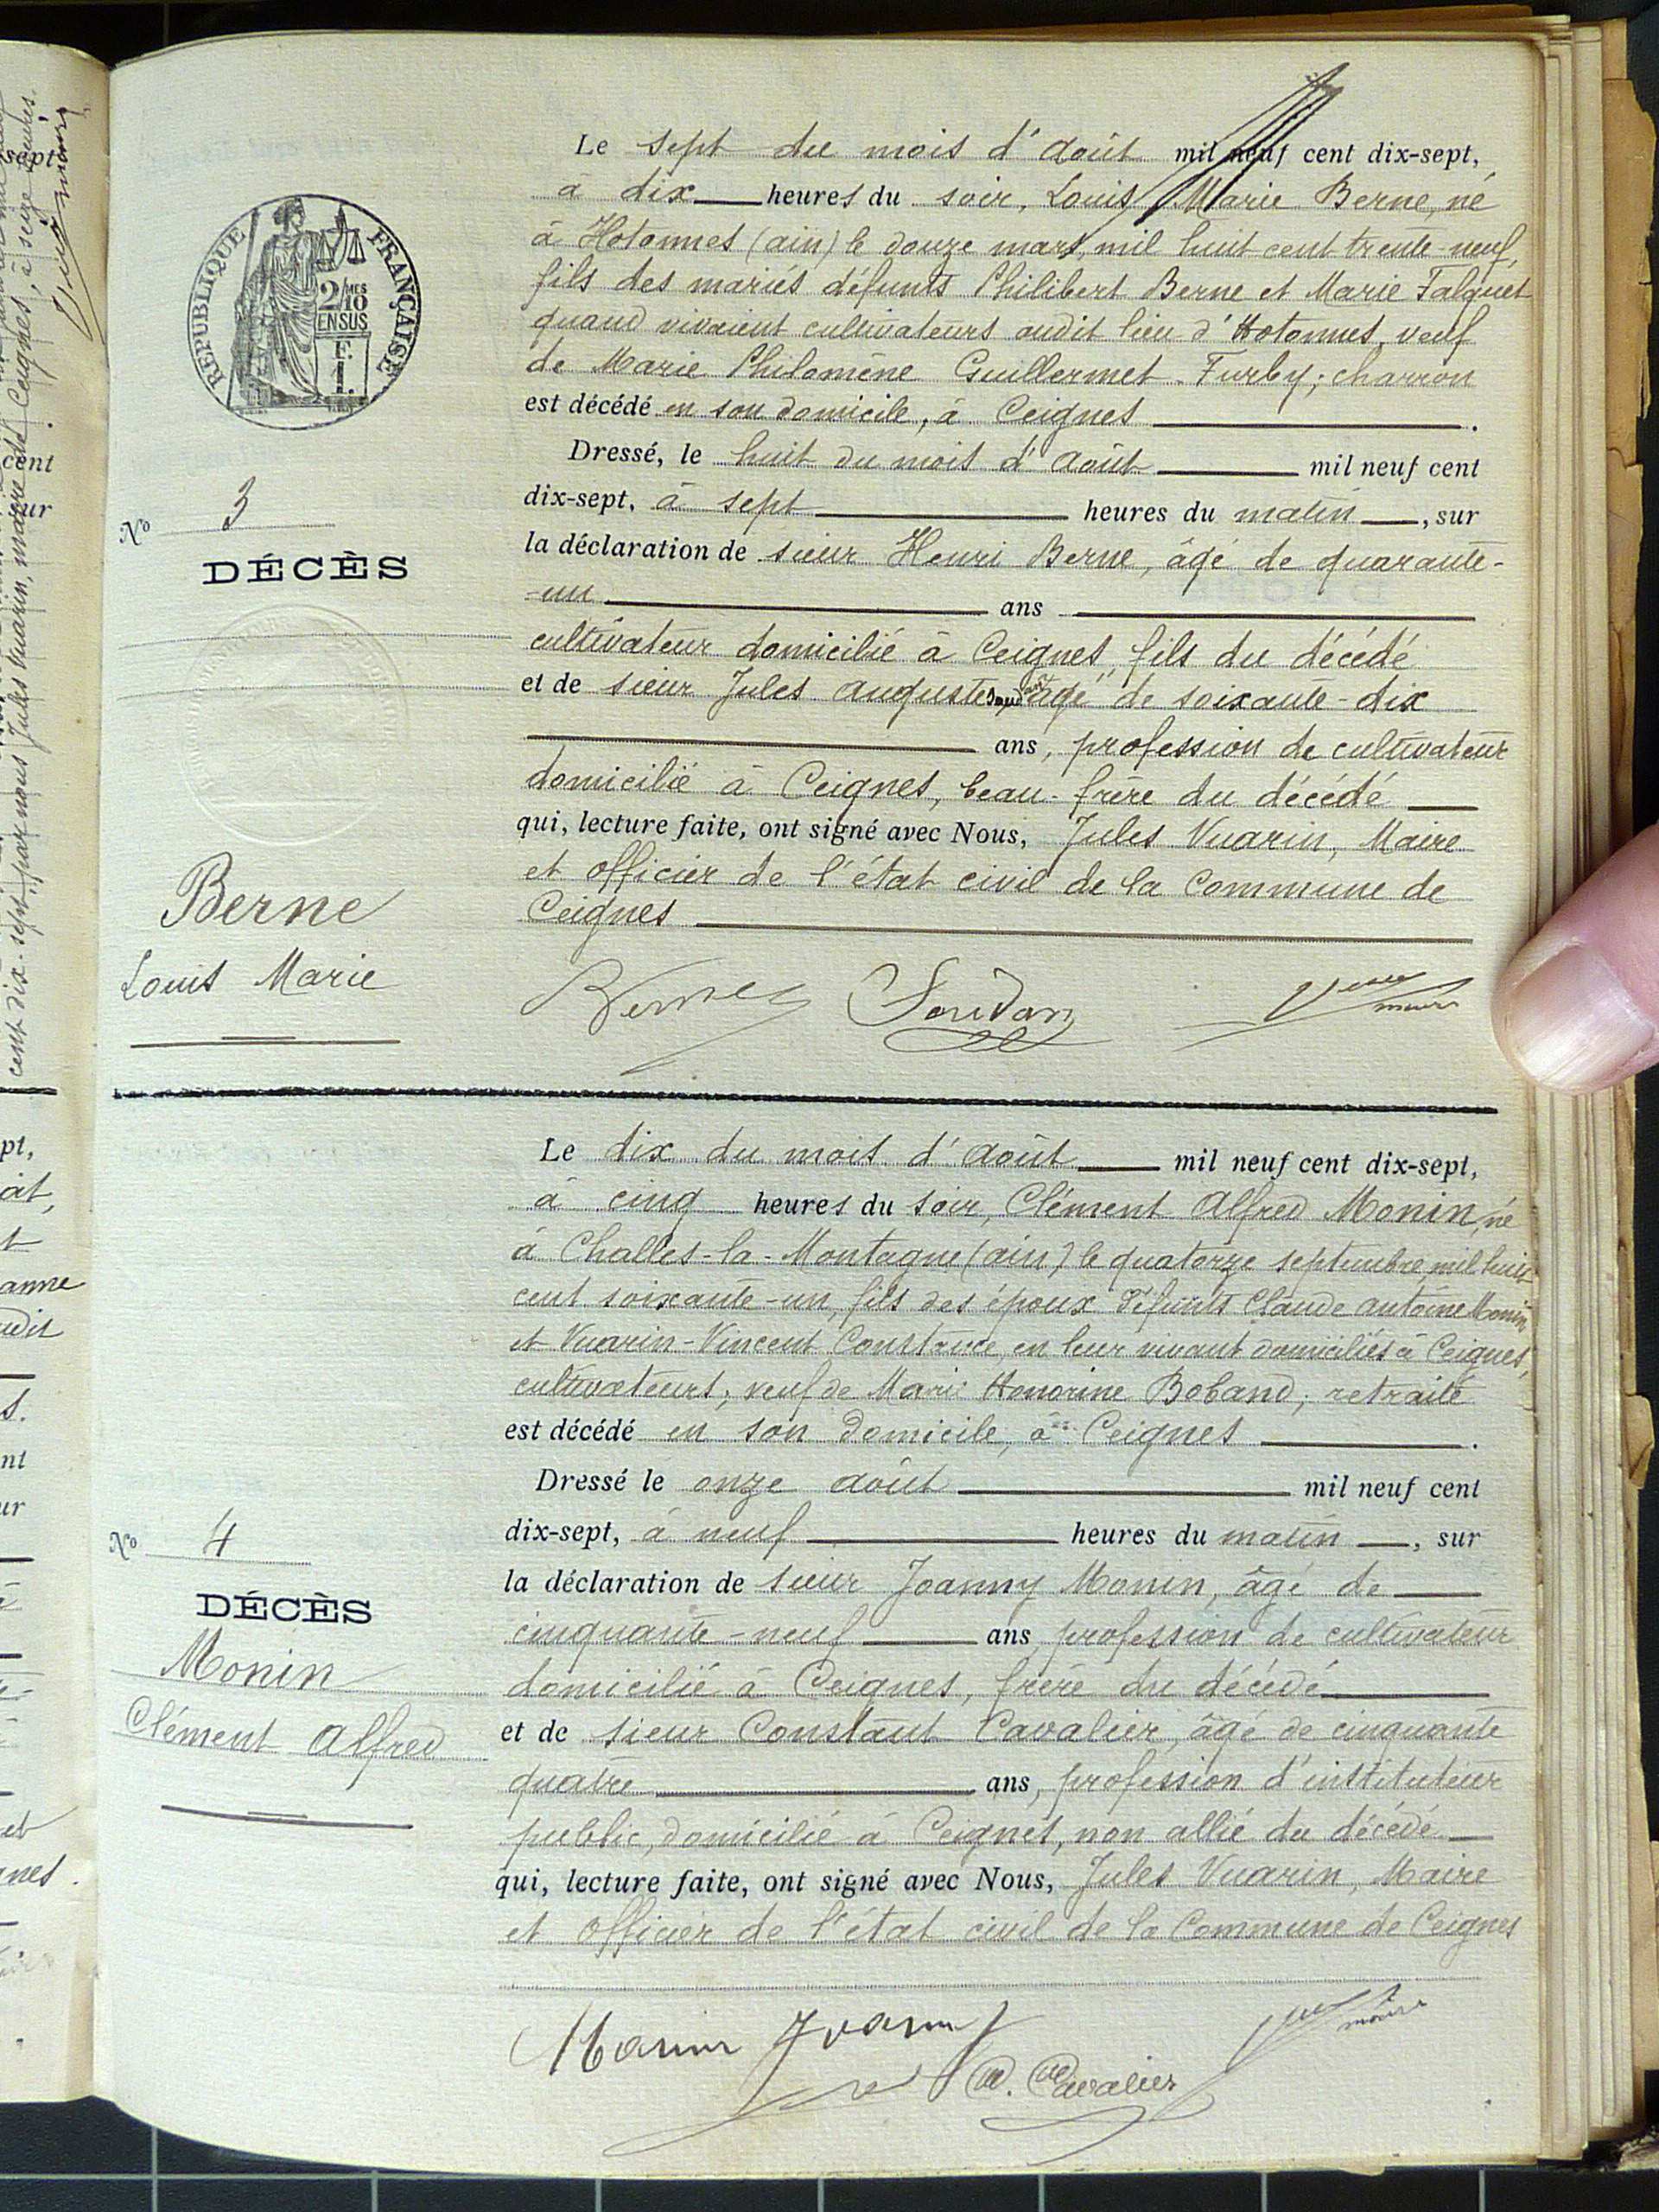 Le sept du mois d'août mil neuf cent dix-sept,
à dix heures du soir, Louis Marie Berne, né
à Hotonnes (ain) le douze mars, mil huit cent trente-neuf,
fils des mariés défunts Philibert Berne et Marie Falquet
quand vivaient cultivateurs audit lieu d'Hotonnes, veuf
de Marie Philomène Guillermet-Furby; charron
est décédé en son domicile, à Ceignes
Dressé, le huit du mois d'août mil neuf cent
dix-sept, à sept heures du matin, sur
la déclaration de sieur Henri Berne, âgé de quarante-
-un ans
cultivateur domicilié à Ceignes, fils du décédé
et de sieur Jules Auguste âgé de soixante-dix
ans, profession de cultivateur
domicilié à Ceignes, beau-frère du décédé
qui, lecture faite, ont signé avec Nous, Jules Vuarin, Maire
et officier de l'état civil de la Commune de
Ceignes
REPUBLIQUE FRANÇAISE
2/10 MES
EN SUS
E.
L.
No 3
DÉCÈS
Berne
Louis Marie
Berne Soudan
maire
Le dix du mois d'août mil neuf cent dix-sept,
à cinq heures du soir, Clément Alfred Monin, né
à Challes-la-Montagne (ain) le quatorze septembre mil huit
cent soixante-un, fils des époux défunts Claude antoine Monin
et Vuarin-Vincent Constance, en leur vivant domiciliés à Ceignes,
cultivateurs; veuf de Marie Honorine Boband; retraité
est décédé en son domicile, à Ceignes
Dressé le onze août mil neuf cent
dix-sept, à neuf heures du matin, sur
la déclaration de sieur Joanny Monin, âgé de
cinquante-neuf ans, profession de cultivateur
domicilié à Ceignes, frère du décédé
et de sieur Constant Cavalier, âgé de cinquante
quatre ans, profession d'instituteur
public, domicilié à Ceignes, non allié du décédé
qui, lecture faite, ont signé avec Nous, Jules Vuarin, Maire
et officier de l'état civil de la Commune de Ceignes
No 4
DÉCÈS
Monin
Clément Alfred
Monin Joanny
C. Cavalier
maire